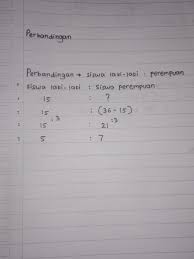 Perbandingan
Perbandingan → siswa laki-laki : perempuan
siswa laki-laki : siswa perempuan
15 : ?
15 : (36 - 15)
:3 :3
15 : 21
5 : 7